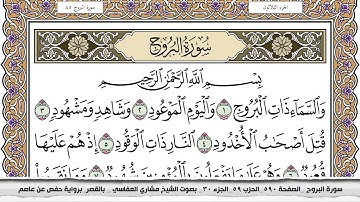 الجزء الثلاثون
سورة البروج ٨٥
سُورَةُ البُرُوجِ
بِسْمِ اللَّهِ الرَّحْمَٰنِ الرَّحِيمِ
وَالسَّمَاءِ ذَاتِ الْبُرُوجِ ١ وَالْيَوْمِ الْمَوْعُودِ ٢ وَشَاهِدٍ وَمَشْهُودٍ ٣
قُتِلَ أَصْحَابُ الْأُخْدُودِ ٤ النَّارِ ذَاتِ الْوَقُودِ ٥ إِذْ هُمْ عَلَيْهَا
قُعُودٌ ٦ وَهُمْ عَلَىٰ مَا يَفْعَلُونَ بِالْمُؤْمِنِينَ شُهُودٌ ٧ وَمَا نَقَمُوا
سورة البروج _ الصفحة ٥٩٠ _ الحزب ٥٩ _ الجزء ٣٠ _ بصوت الشيخ مشاري العفاسي _ بالقصر _ برواية حفص عن عاصم